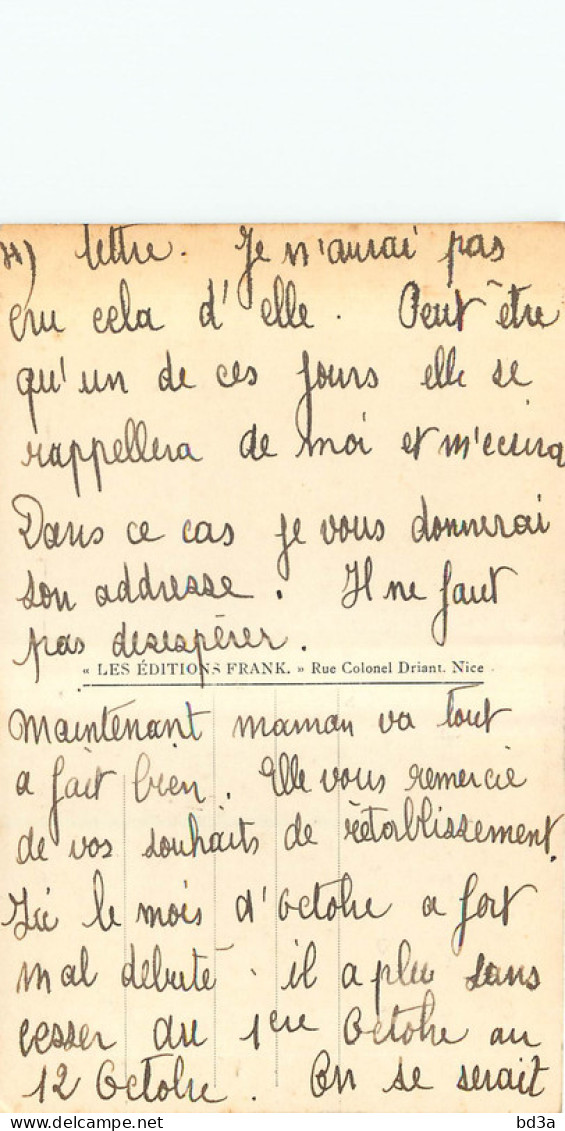 lettre. Je n'aurai pas
cru cela d'elle. Peut être
qu'un de ces jours elle se
rappellera de moi et m'ecrira
Dans ce cas je vous donnerai
son addresse. Il ne faut
pas desespérer.
« LES ÉDITIONS FRANK. » Rue Colonel Driant. Nice
Maintenant maman va tout
a fait bien. Elle vous remercie
de vos souhaits de rètablissement.
Ici le mois d'Octobre a fort
mal débuté. il a plu sans
cesser du 1ere Octobre au
12 Octobre. On se serait
delcampe.net
bd3a